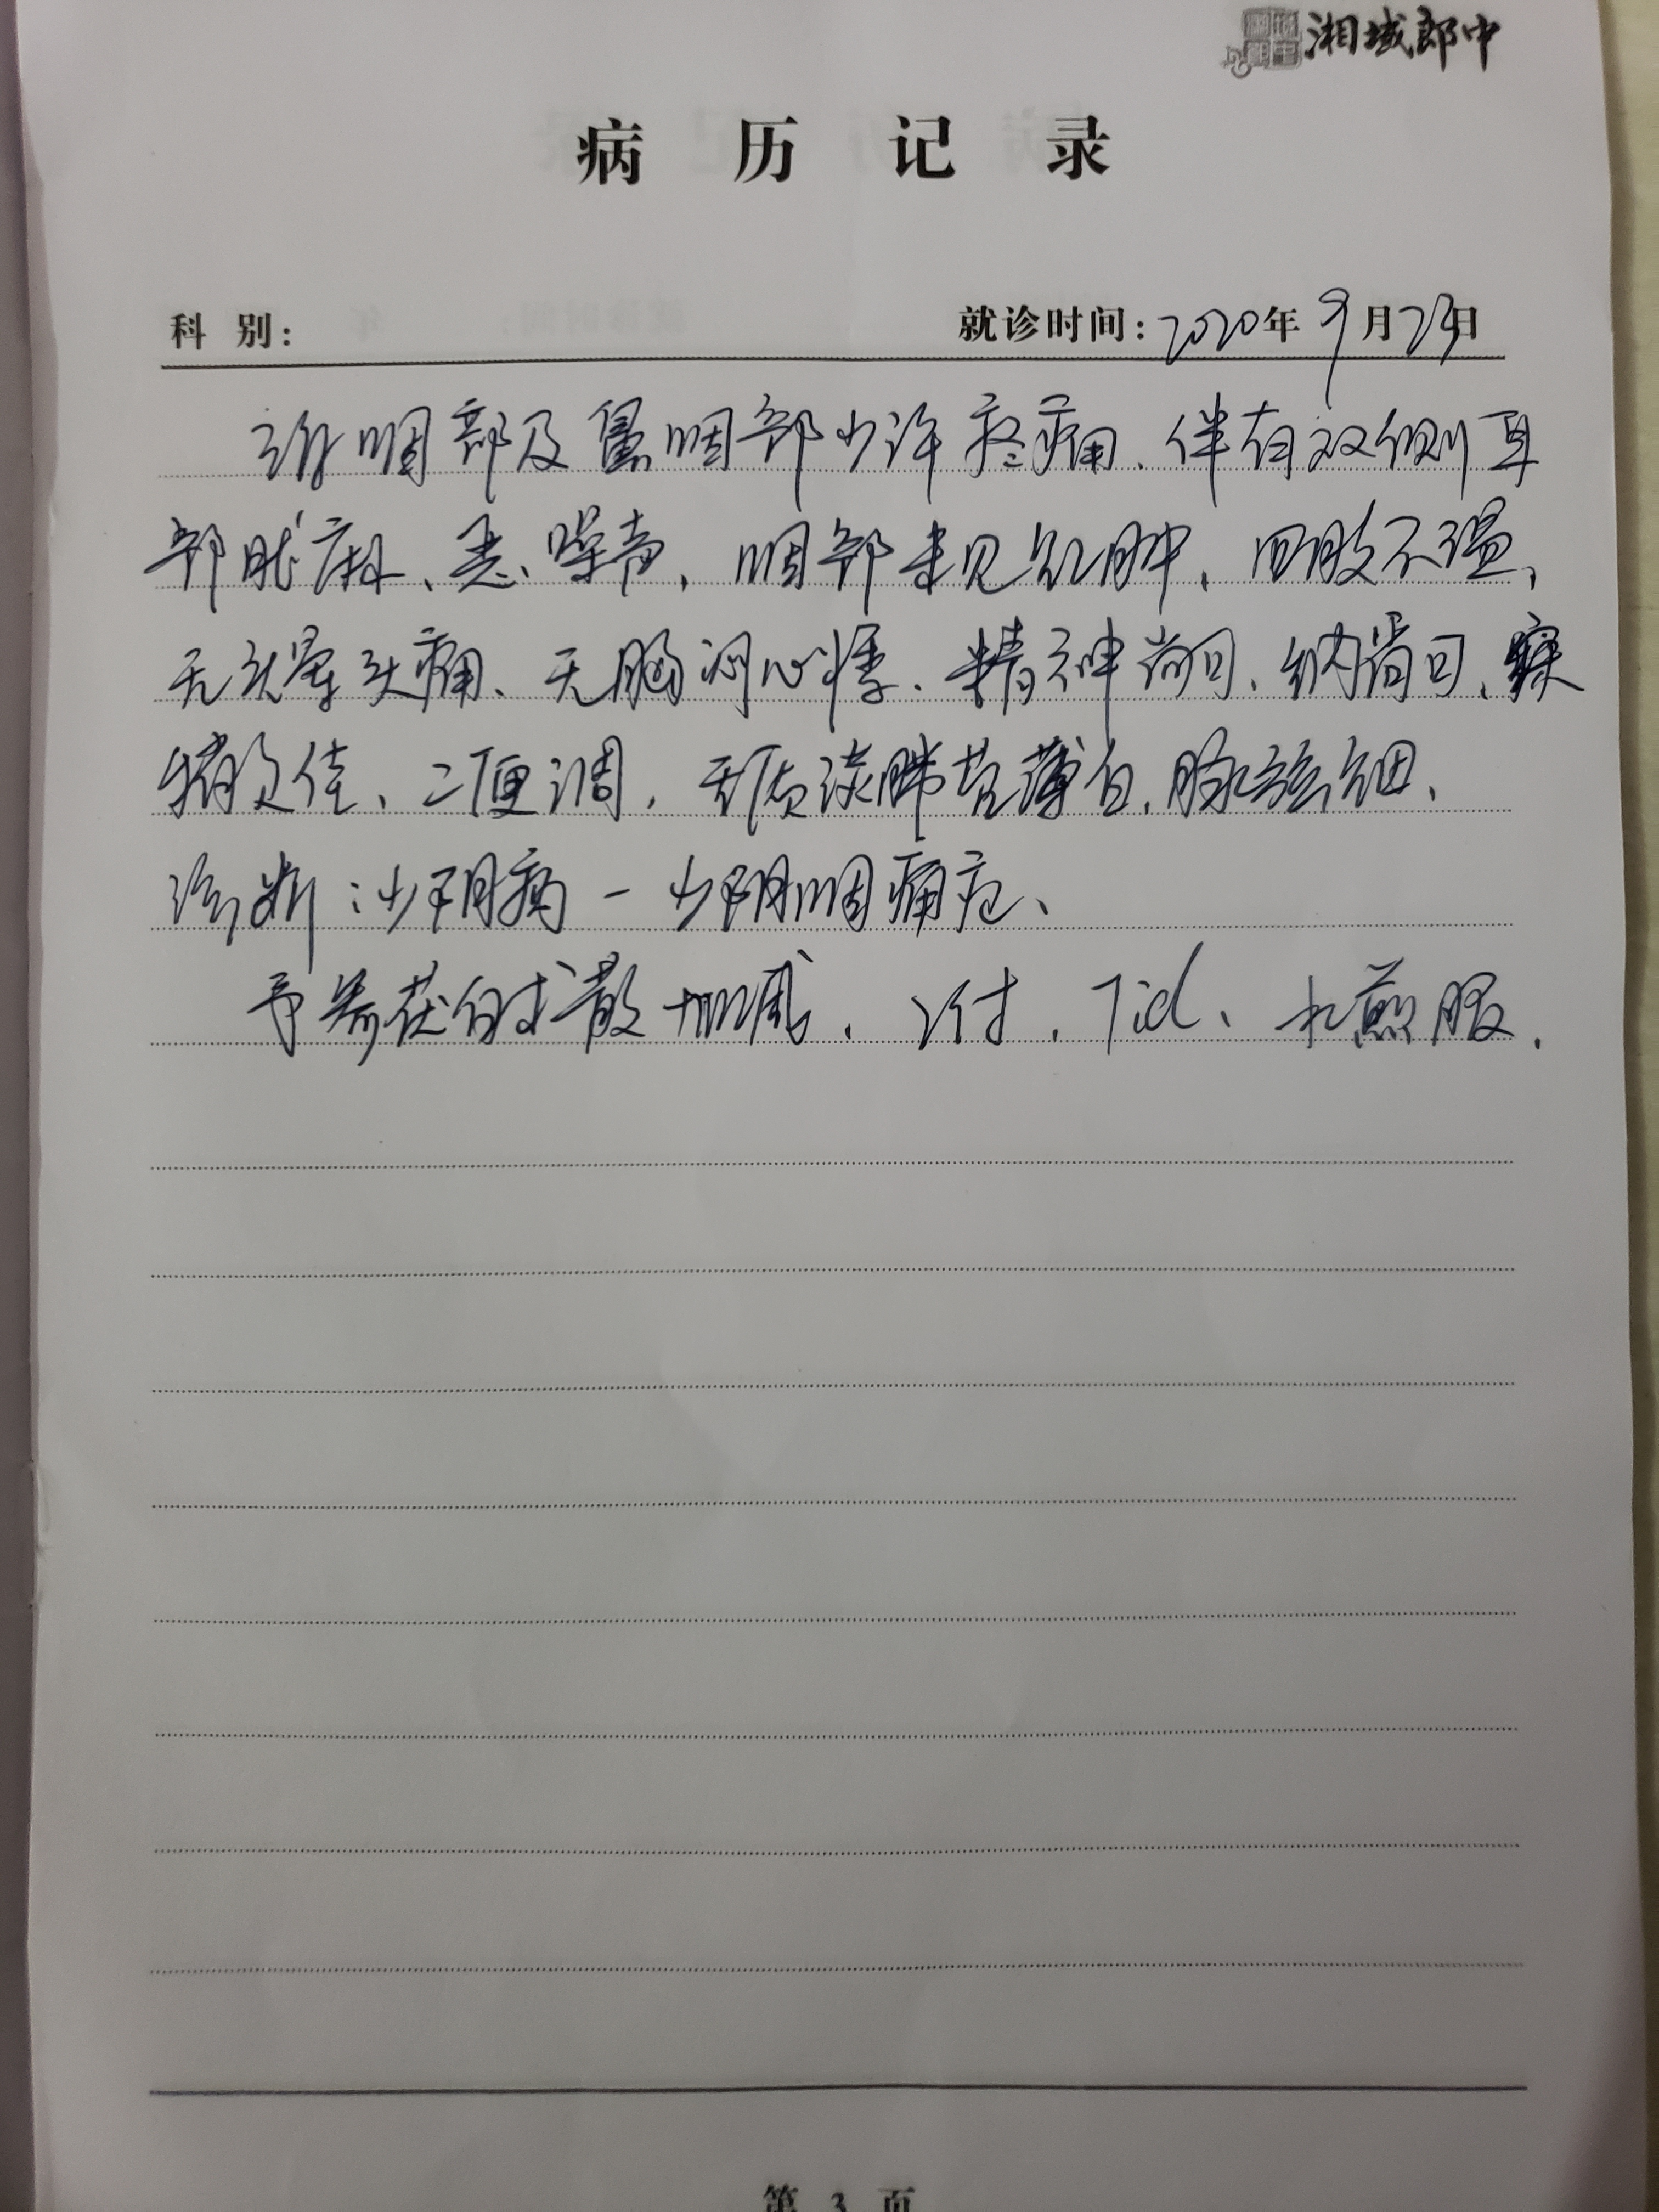 湘域郎中
病 历 记 录
科 别: 就诊时间: 2020年9月23日
诉咽部及鼻咽部少许疼痛、伴有双侧耳
部胀麻、恶噪声, 咽部未见红肿, 四肢不温、
无头晕头痛、无胸闷心悸、精神尚可、纳尚可、寐
稍欠佳、二便调, 舌质淡胖苔薄白, 脉弦细、
诊断: 少阴病 - 少阴咽痛症、
予苓茯白术散加减、 付, Tid、水煎服.
第 3 页